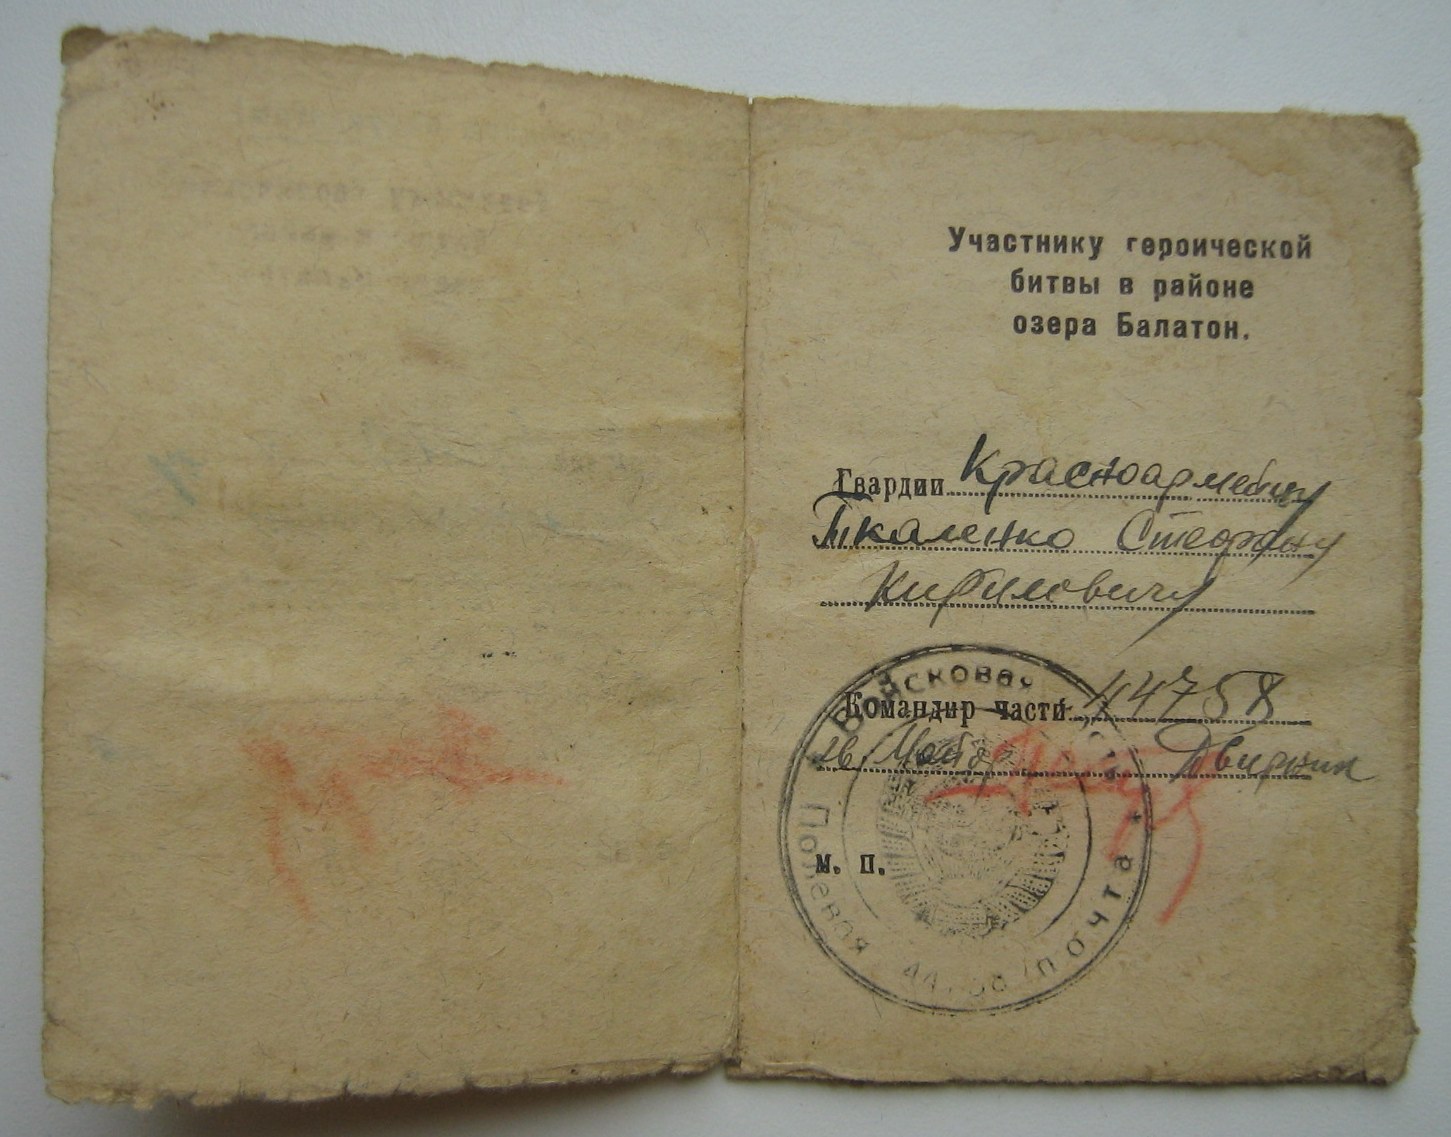 Участнику героической
битвы в районе
озера Балатон.
Гвардии Красноармейцу
Ткаленко Стефану
Кириловичу
Командир части 44758
гв. Майор Двиркин
м. п.
Войсковая часть
Полевая почта